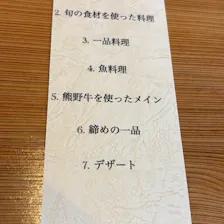 2. 旬の食材を使った料理
3. 一品料理
4. 魚料理
5. 熊野牛を使ったメイン
6. 締めの一品
7. デザート